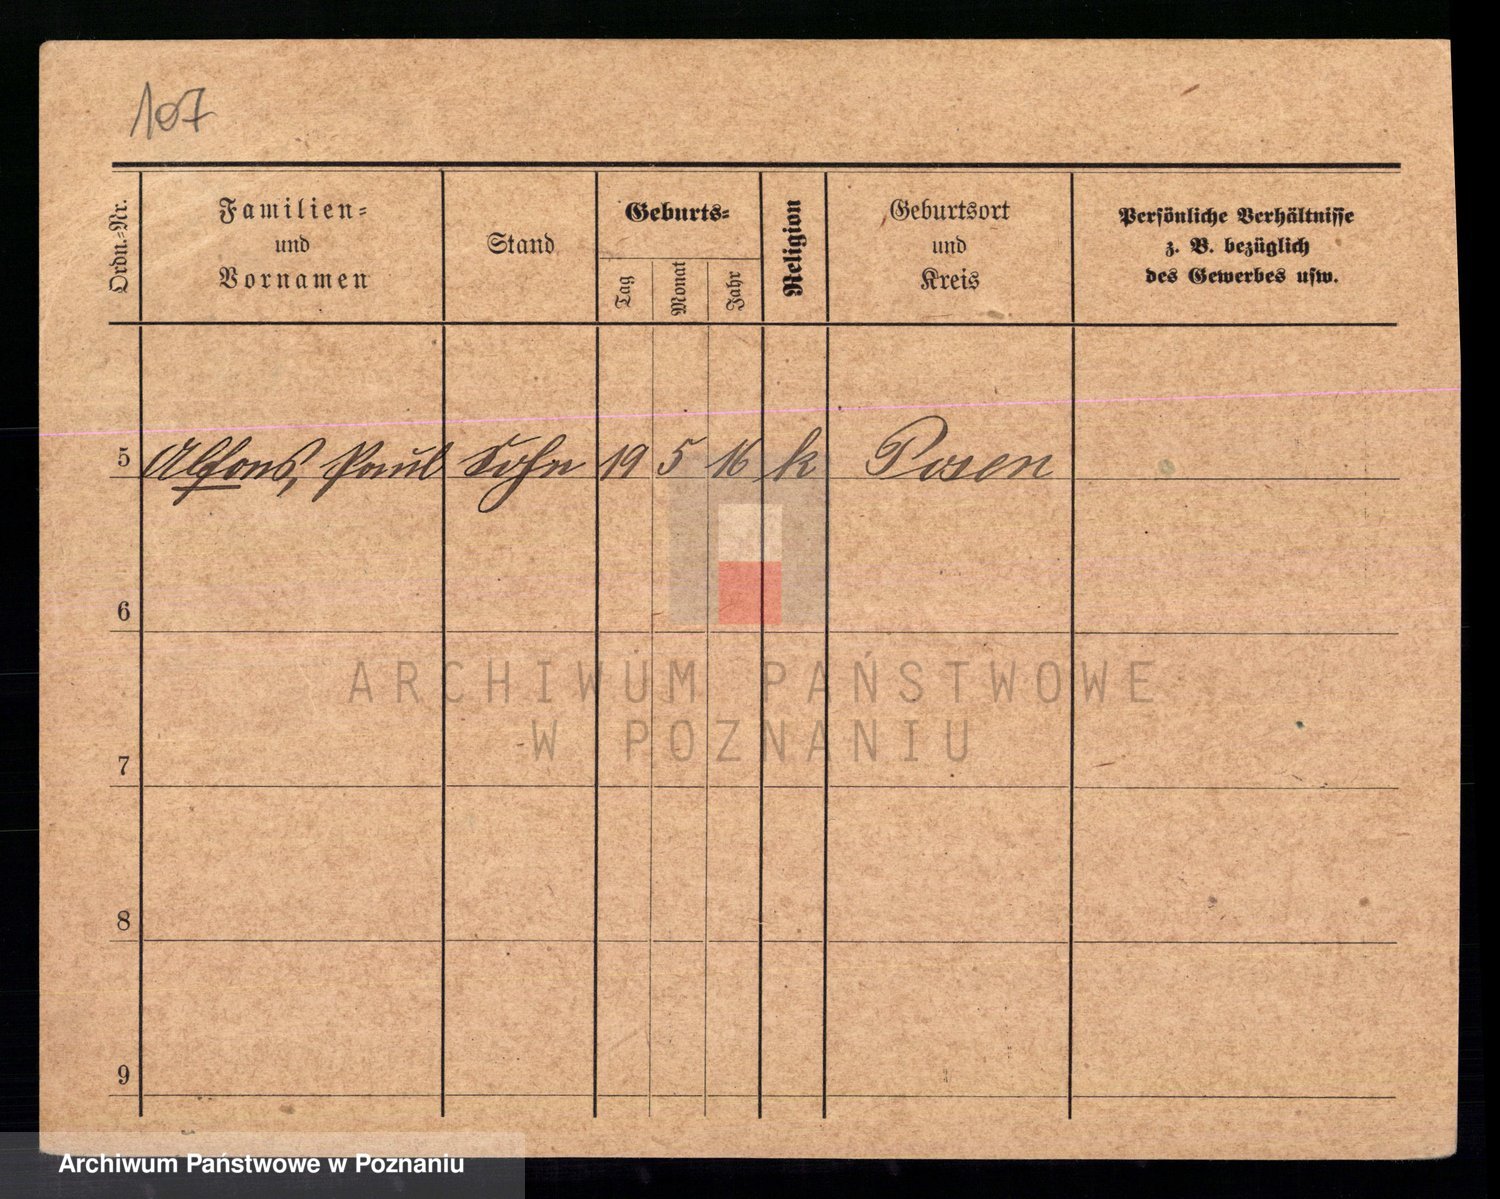 107
Ordn.-Nr.
Familien-
und
Vornamen
Stand
Geburts-
Tag
Monat
Jahr
Religion
Geburtsort
und
Kreis
Persönliche Verhältnisse
z. B. bezüglich
des Gewerbes usw.
5 Alfons, Paul Sohn 19 5 16 k Posen
6
7
8
9
ARCHIWUM PAŃSTWOWE
W POZNANIU
Archiwum Państwowe w Poznaniu